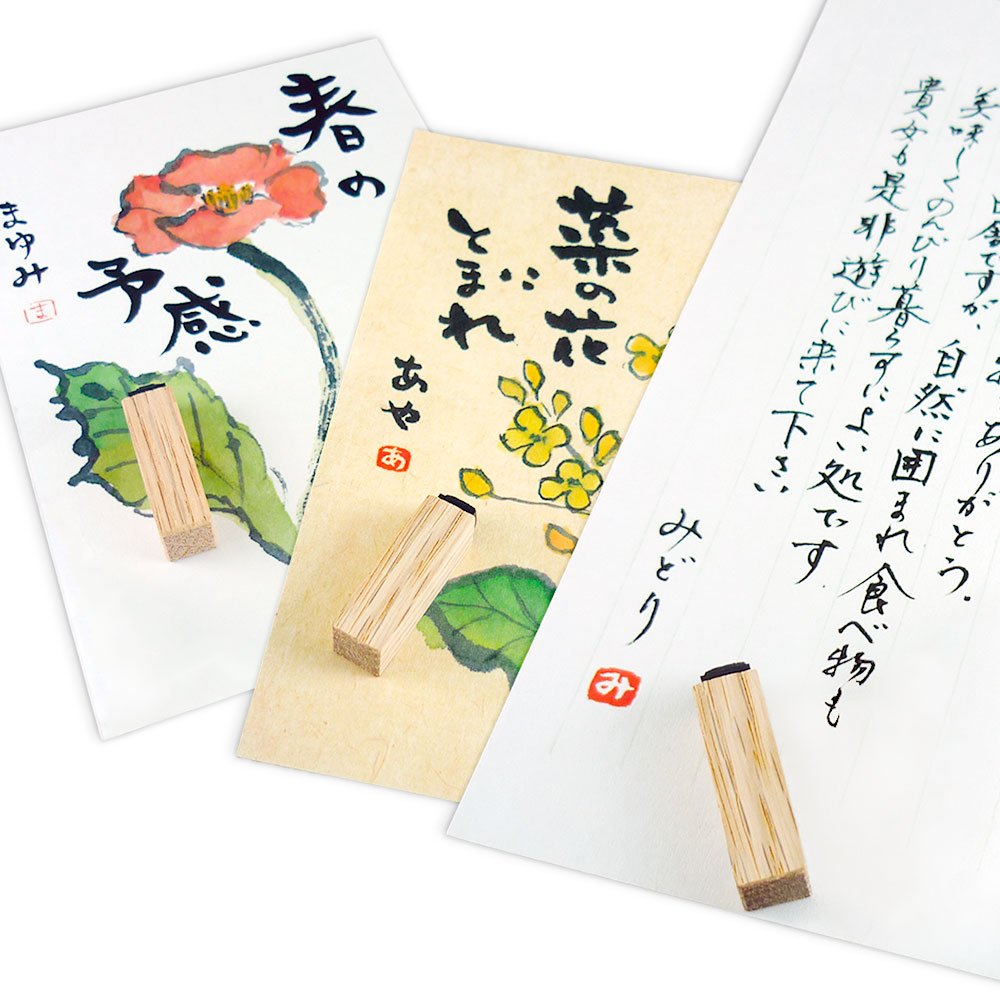 春の
予感
まゆみ
ま
菜の花
とまれ
あや
あ
ありがとう。
田舎ですが、自然に囲まれ食べ物も
美味しくのんびり暮らすによい処です
貴女も是非遊びに来て下さい
みどり
み